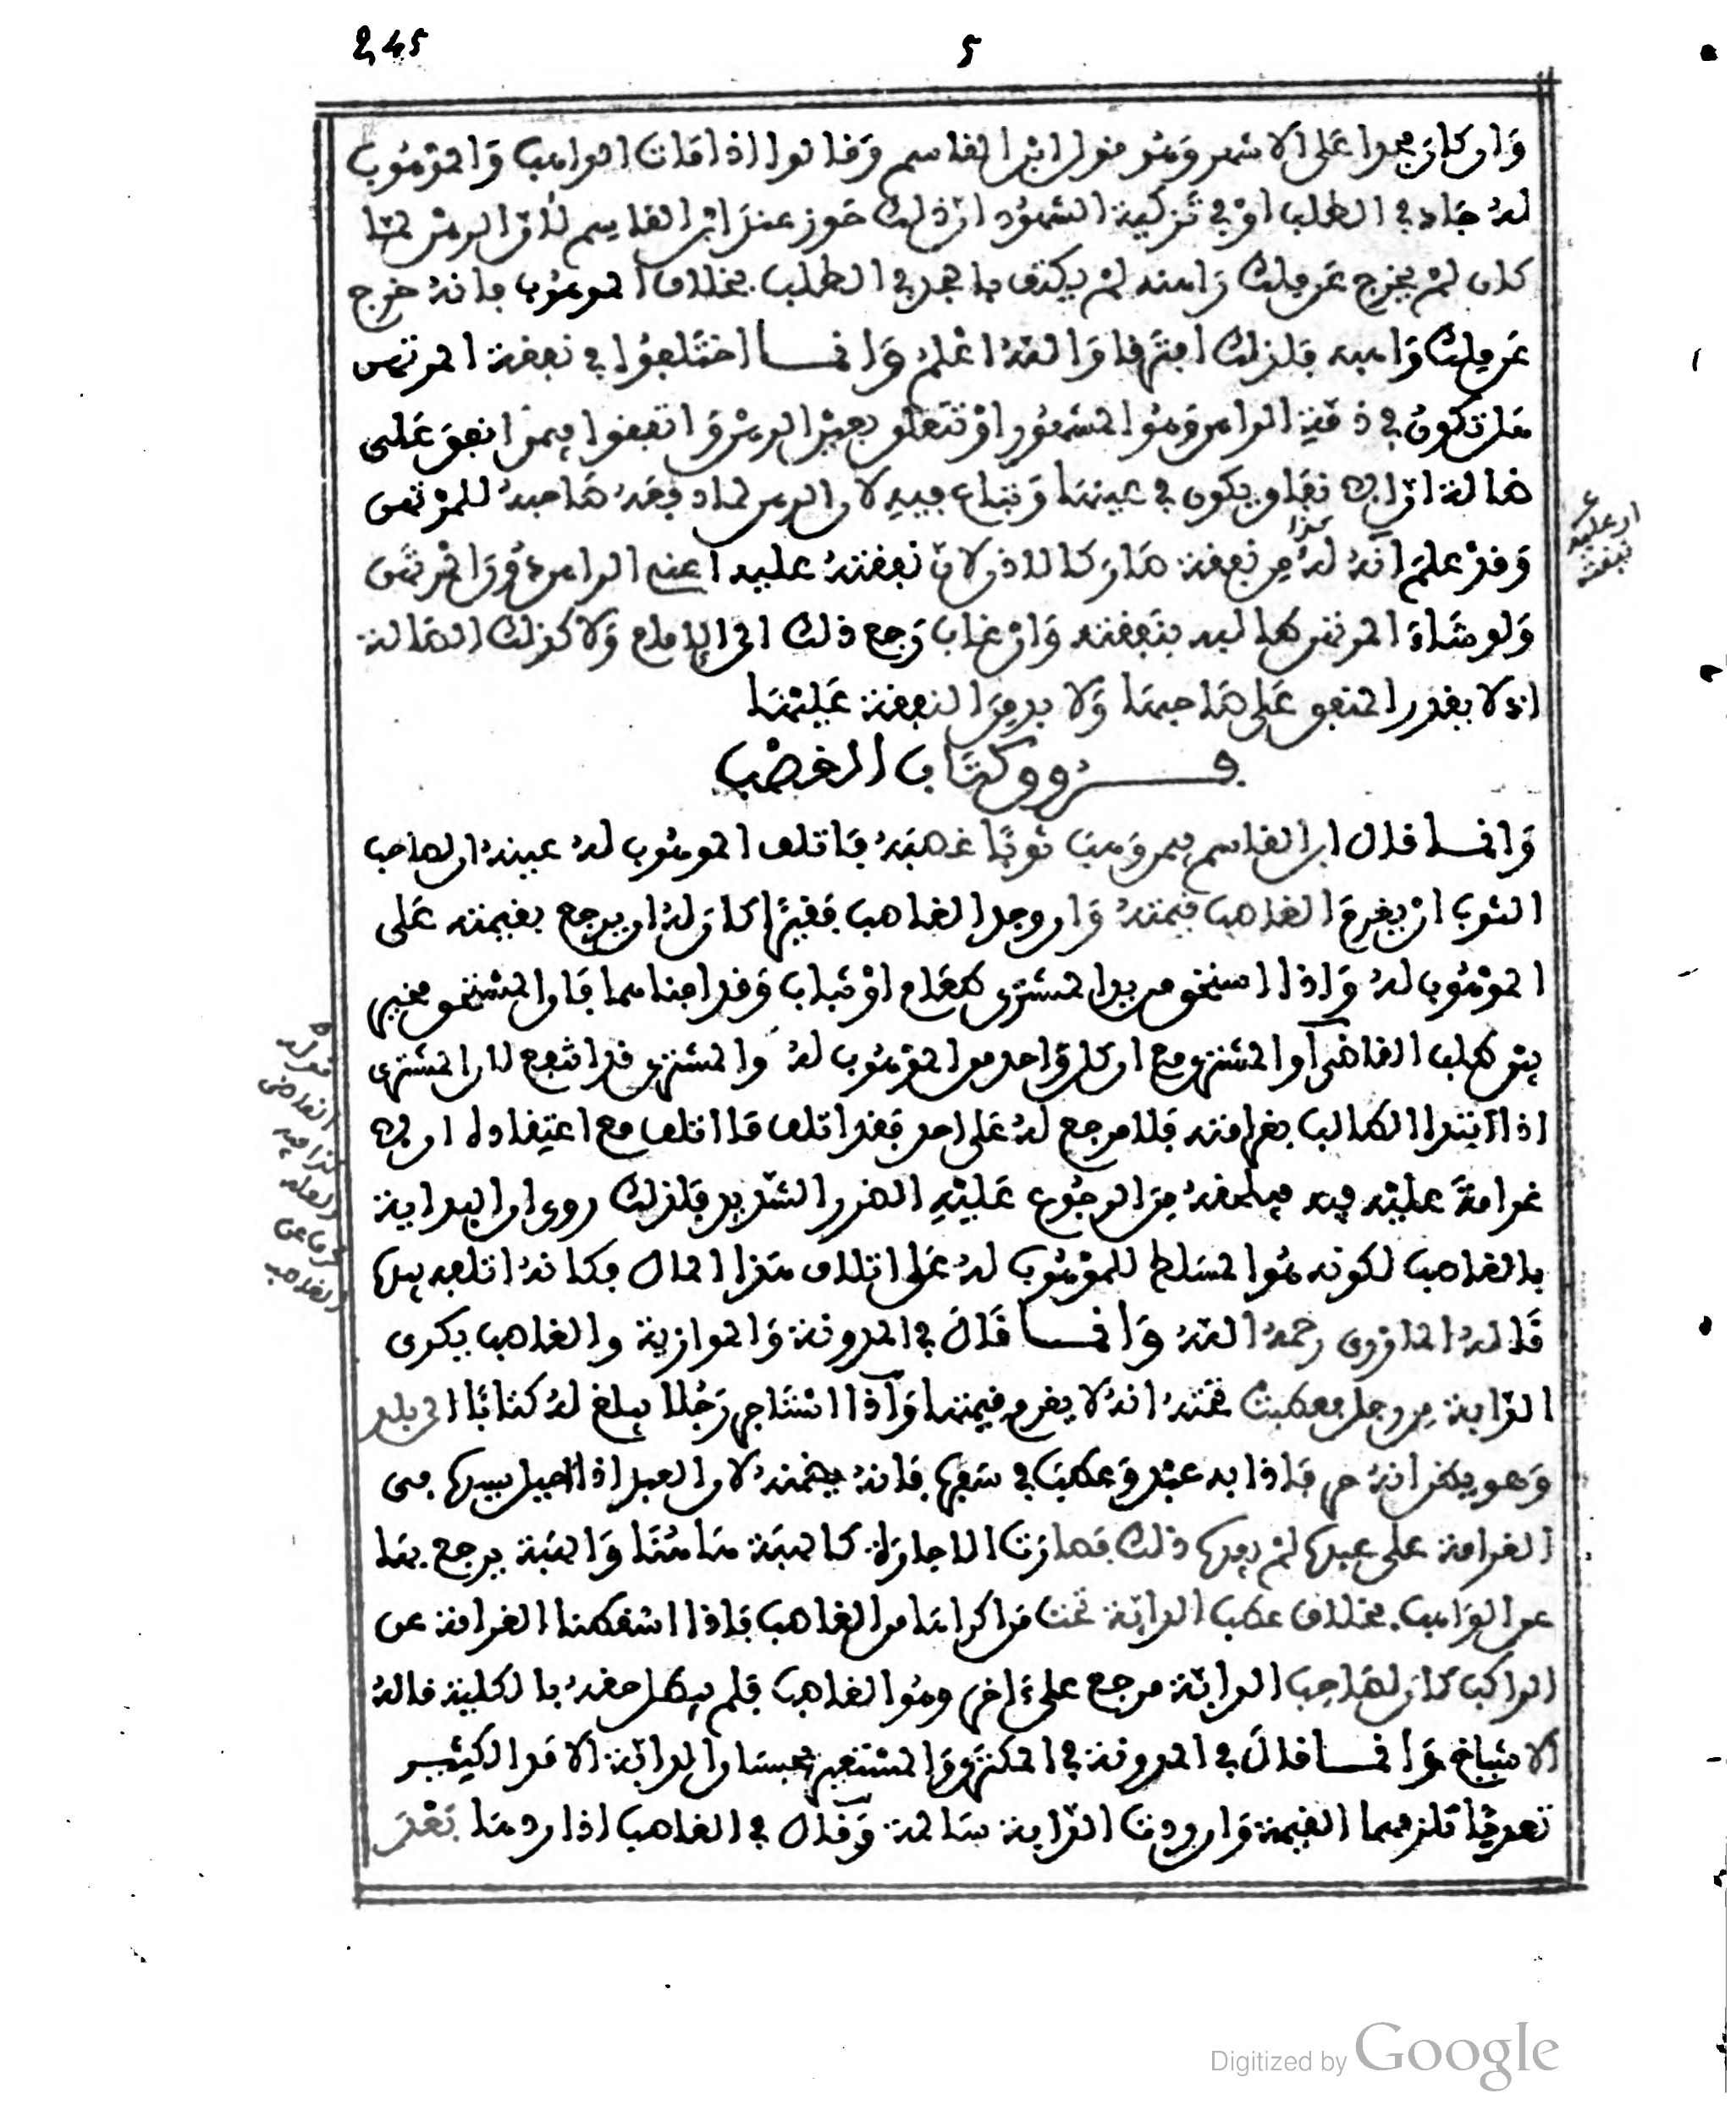 245 5
وان كان مجدا على الاشهر وهو قول ابن القاسم وقالوا اذا مات الواهب والموهوب
له جاد في الطلب او في تزكية الشهود ان ذلك حوز عند ابن القاسم لان الرهن لما
كان لم يخرج عن ملك راهنه لم يكتف بالجد في الطلب بخلاف الموهوب فانه خرج
عن ملك واهبه فلذلك افترقا والله اعلم وانما اختلفوا في نفقة المرتهن
هل تكون في ذمة الراهن وهو المشهور او تتعلق بعين الرهن واتفقوا فيمن انفق على
ضالة ان نفقاته يكون في عينها وتباع فيه لان الرهن لما دفعه صاحبه للمرتهن
وقد علم انه له من نفقة صار كالاذن لان نفقته عليه
ولو شاء المرتهن طالبه بنفقته وان غاب رجع ذلك الى الامام ولا كذلك الضالة
اذ لا يقدر المنفق على صاحبها ولا بد من النفقة عليها
فروق كتاب الغصب
وانما قال ابن القاسم فيمن وهب ثوبا غصبه فاتلف الموهوب له عينه ان لصاحب
الثوب ان يغرم الغاصب قيمته وان وجد الغاصب فقيرا كان له ان يرجع بقيمته على
الموهوب له واذا استحق من يد المشتري طعام او ثياب وقد افناهما فان المستحق مخير
في طلب الغاصب او المشتري مع ان كل واحد من الموهوب له والمشتري قد انتفع لان المشتري
اذا ابتدا الطالب بغرامته فلا مرجع له على احد فقد اتلف ما اتلف مع اعتقاده ان
غرامة عليه فيه فيلحقه من الرجوع عليه الضرر الشديد فلذلك روى ان البداية
بالغاصب لكونه هو المسلط للموهوب له على اتلاف هذا المال فكانه اتلفه بيده
قاله المازري رحمه الله وانما قال في المدونة والموازية والغاصب يكري
الدابة من رجل فعطبت تحته انه لا يغرم قيمتها واذا استاجر رجلا يبلغ له كتابا الى بلد
وهو يظن انه حر فاذا به عبد وعطب في سفره فانه يضمنه لان العبد اذا قيل لسيده في
الغرامة على عبده لم يفده ذلك فصارت الاجارة كالهبة هاهنا والهبة يرجع بها
على الواهب بخلاف عطب الدابة تحت من اكراها من الغاصب فاذا اسقطنا الغرامة عن
الراكب كان لصاحب الدابة مرجع على اخر وهو الغاصب فلم يبطل حقه بالكلية قاله
الاشياخ وانما قال في المدونة في المكتري والمستعير يحبسان الدابة الامد الكثير
تعديا تلزمهما القيمة وان ردت الدابة سالمة وقال في الغاصب اذا ردها بعد
او عليه
نفقته
الغاصب
Digitized by Google